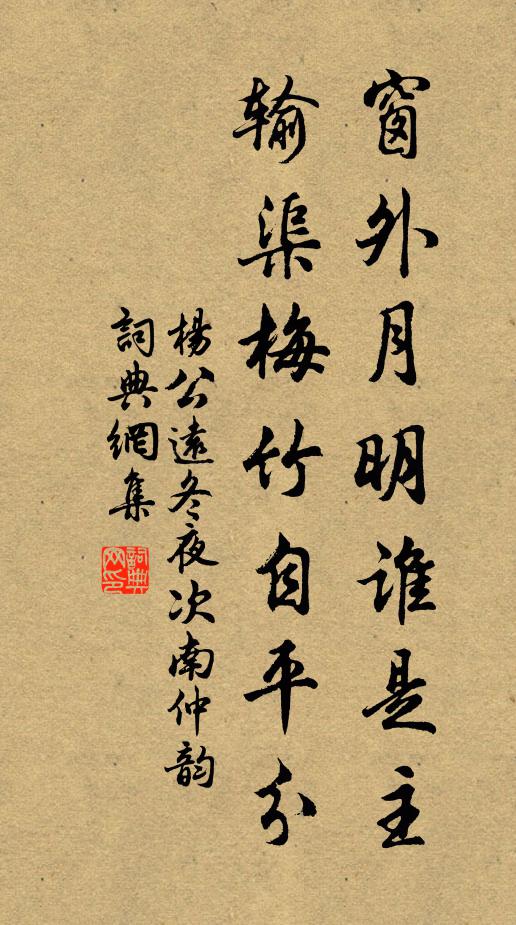 窗外月明誰是主
輸渠梅竹自平分
楊公遠冬夜次南仲韵
詞典網集
詞典网印